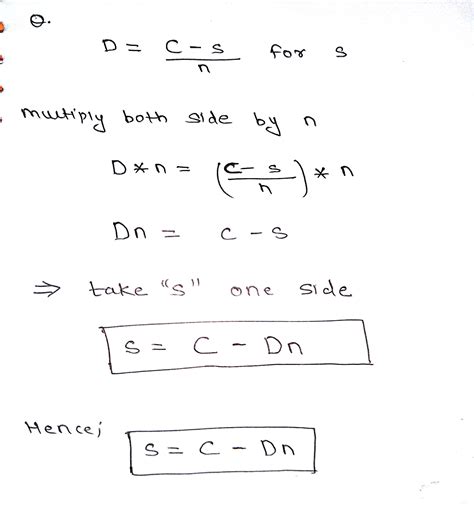 Q.
D = C - s / n for s
multiply both side by n
D * n = (C - s / n) * n
Dn = C - s
⇒ take "s" one side
s = C - Dn
Hence;
s = C - Dn